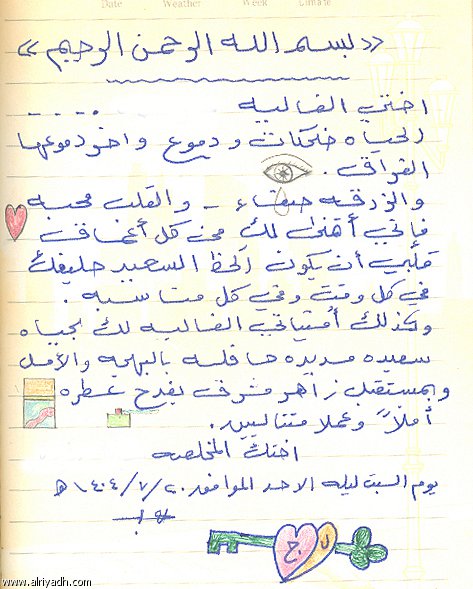 Date Weather Week Climate
«بسم الله الرحمن الرحيم»
اختي الغاليه
الحياه ضحكات ودموع واخر دموعها
الفراق.
والورقه بيضاء - والقلب محبه
فإني أتمنى لك من كل أعماق
قلبي أن يكون الحظ السعيد حليفك
في كل وقت وفي كل مناسبه.
وكذلك أمنياتي الغاليه لك بحياه
سعيده مديده حافله بالبهجه والأمل
وبمستقبل زاهر مشرف يفدح عطره
أملاً وعملا
اختك المخلصه
يوم السبت ليله الاحد الموافق ٢٠/٧/١٤٠٤ هـ
ج ل
www.alriyadh.com